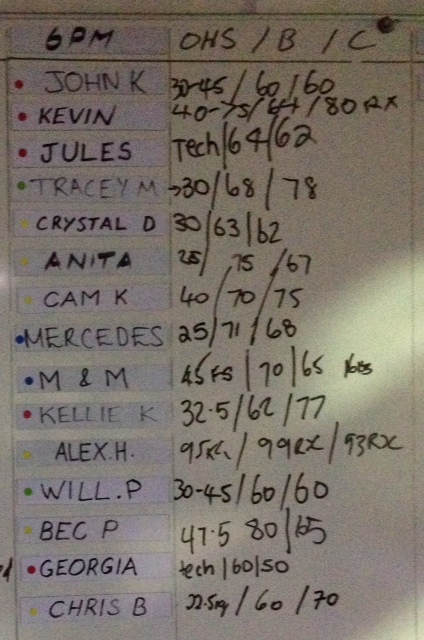 6PM OHS / B / C
JOHN K 30-45 / 60 / 60
KEVIN 40-75 / 64 / 80 RX
JULES Tech / 64 / 62
TRACEY M →30 / 68 / 78
CRYSTAL D 30 / 63 / 62
ANITA 25 / 75 / 67
CAM K 40 / 70 / 75
MERCEDES 25 / 71 / 68
M & M 45 / 70 / 65
KELLIE K 32.5 / 62 / 77
ALEX.H. 95KG / 99RX / 93RX
WILL.P 30-45 / 60 / 60
BEC P 47.5 80 / 65
GEORGIA tech / 60 / 50
CHRIS B 22.5kg / 60 / 70